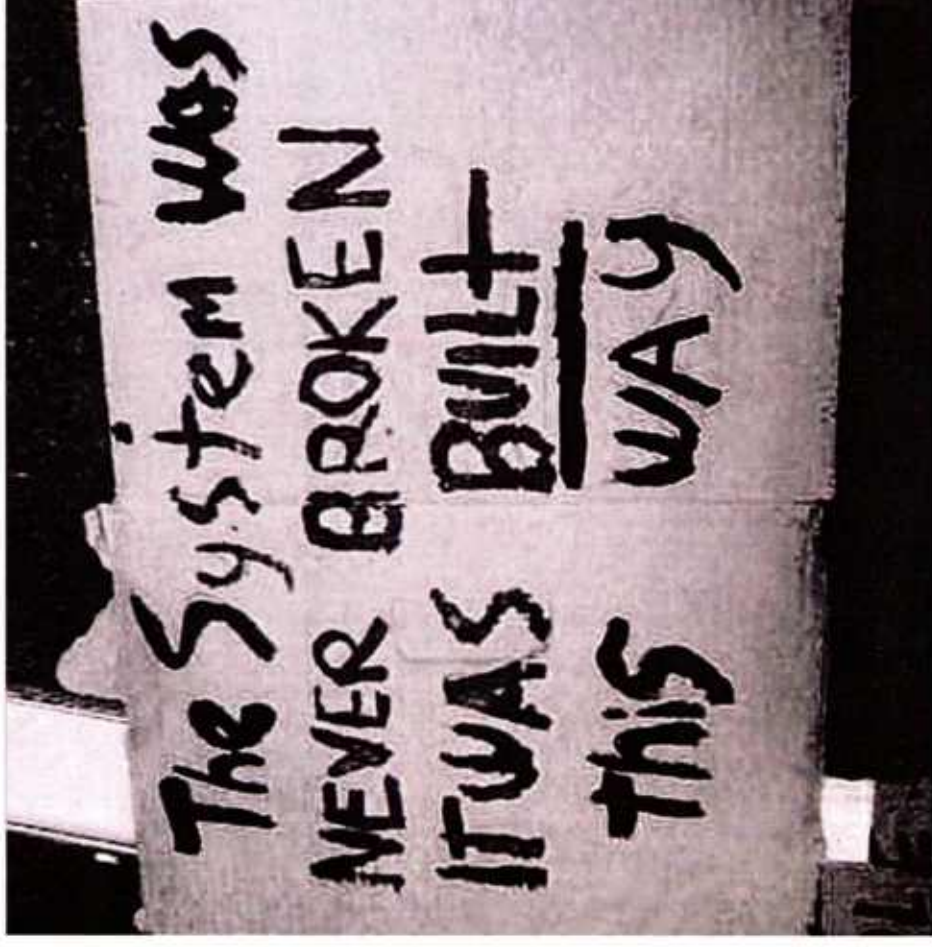 The System Was
NEVER BROKEN
IT WAS BUILt
This WAY